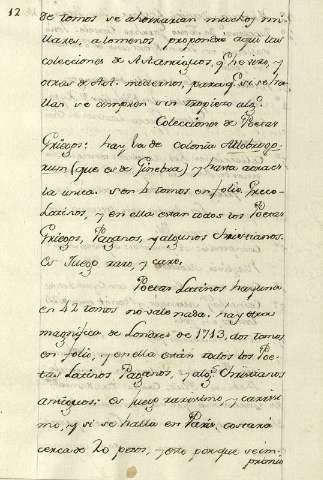 12
de tomos se ahorrarian muchos mi
llares, alomenos propondre aqui las
colecciones de Antiguos, q.e he visto, y
otras de Aut. para q.e si se ha
llan se compren sin tropiezo alg.o
Colecciones de Poetas
Griegos: hay la de Colonia Allobrogo-
rum (que es de Ginebra) y hasta aora es
la unica. Son 4 tomos en folio. Greco-
Latinos, y en ella estan todos los Poetas
Griegos, Paganos, y algunos Christianos.
Es Juego raro, y caro.
Poetas Latinos hay una
en 42 tomos no vale nada: hay otra
magnifica de Londres de 1713, dos tomos
en folio, y en ella están todos los Poe-
tas Latinos Paganos, y alg.s Christianos
antiguos: es juego rarissimo, y carissi
mo, y si se halla en Paris, costará
cerca de 20 pesos, y esto porque se im
primio